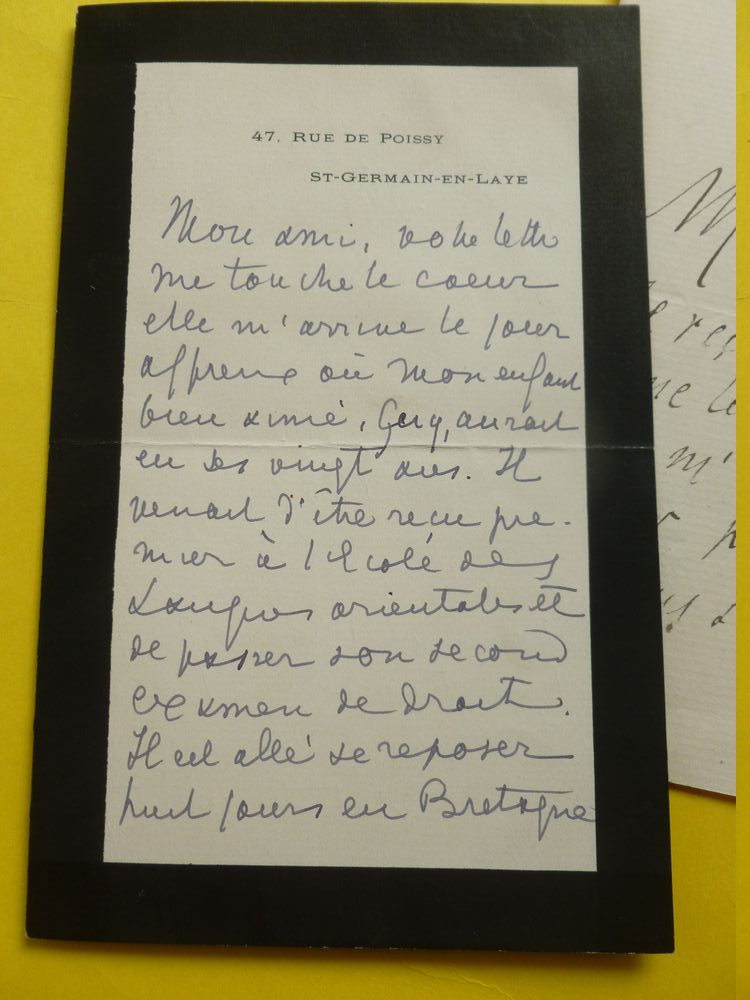 47. RUE DE POISSY
ST-GERMAIN-EN-LAYE
Mon ami, votre lettre
me touche le coeur
elle m'arrive le jour
affreux où mon enfant
bien aimé, Guy, aurait
eu ses vingt ans. Il
venait d'être reçu pre-
mier à l'École des
Langues orientales et
de passer son second
examen de droit.
Il est allé se reposer
huit jours en Bretagne
M
m'